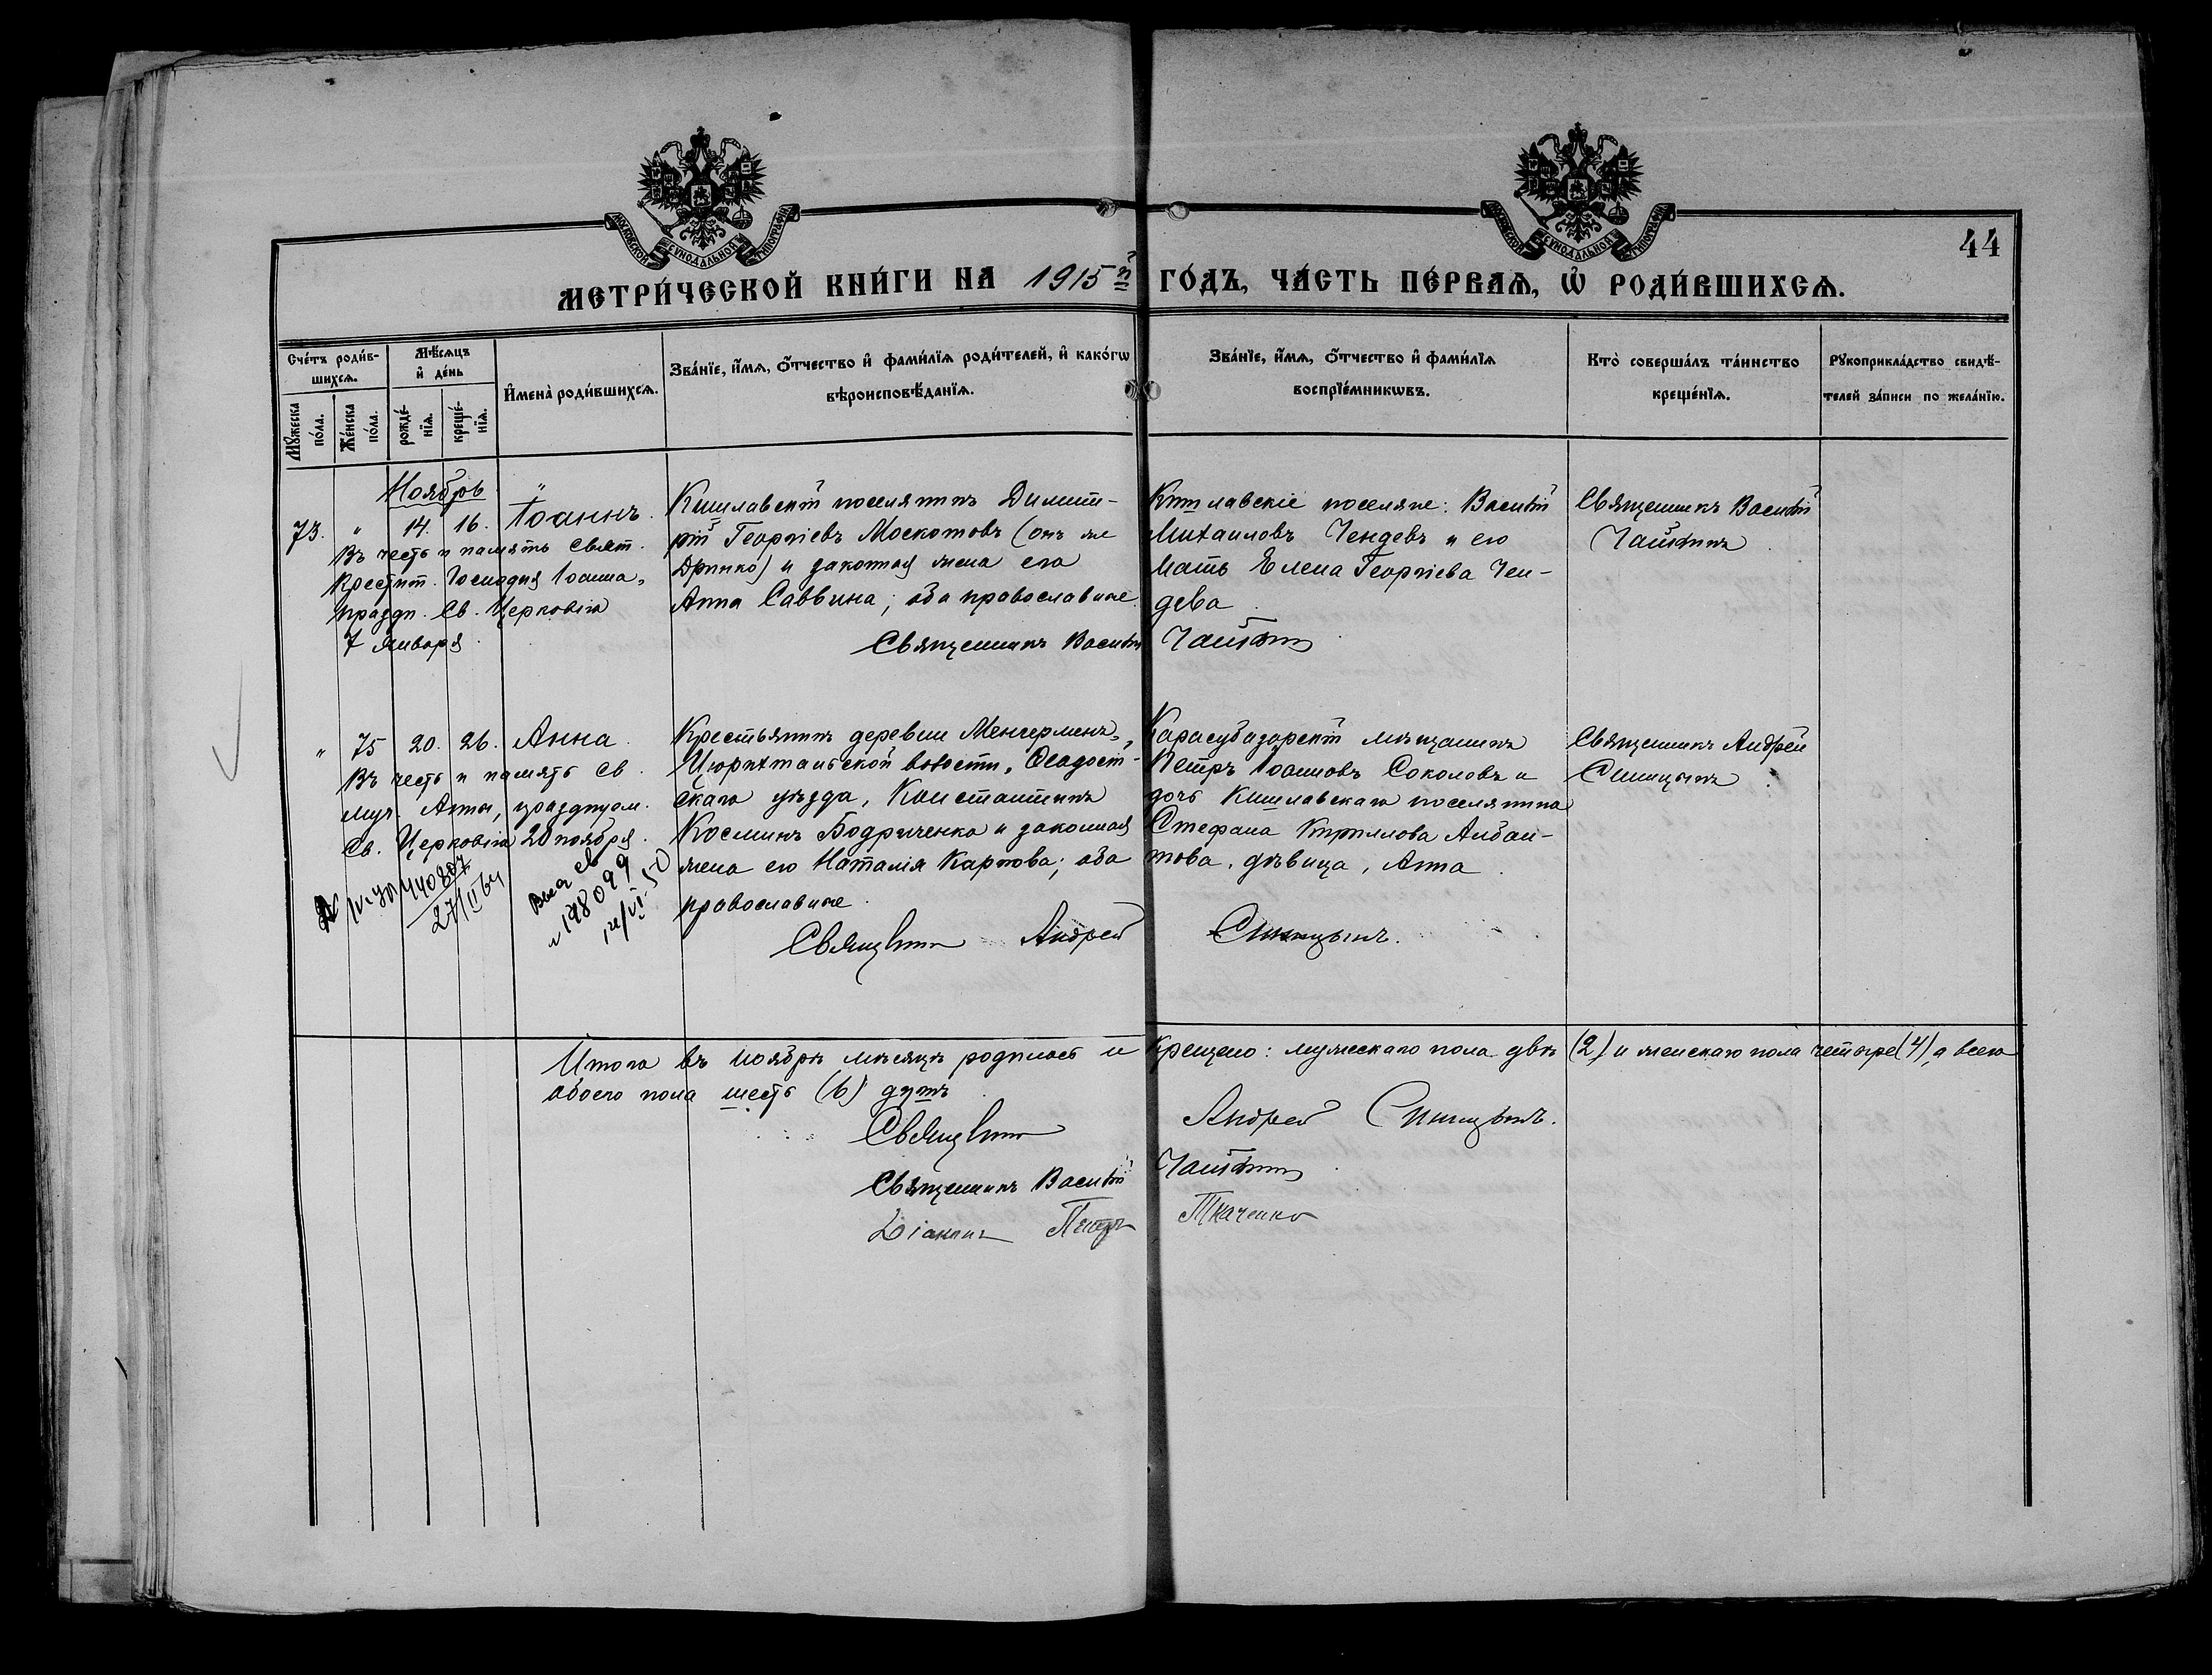 44
МЕТРИ́ЧЕСКОЙ КНИ́ГИ НА 1915й ГО́ДЪ, ЧА́СТЬ ПЕ́РВАѦ, Ѡ҆ РОДИ́ВШИХСѦ.
Сче́тъ роди́в-
шихсѧ.
Мꙋ́жеска
по́ла.
Же́нска
по́ла.
Мѣ́сѧцъ
и҆ де́нь
рожде́-
нїѧ.
креще́-
нїѧ.
И҆мена̀ роди́вшихсѧ.
Зва́нїе, и҆́мѧ, ѻ҆́тчество и҆ фами́лїѧ роди́телей, и҆ како́гѡ
вѣроисповѣ́данїѧ.
Зва́нїе, и҆́мѧ, ѻ҆́тчество и҆ фами́лїѧ
воспрїе́мникѡвъ.
Кто̀ соверша́лъ та́инство
креще́нїѧ.
Рꙋкоприкла́дство свидѣ́-
телей за́писи по жела́нїю.
Ноябрь
73. " 14. 16. Іоаннъ.
Въ честь и память Свят.
Крестит. Господня Іоанна,
праздн. Св. Церковію
7 января.
Кишлавскій поселянинъ Димит-
рій Георгіевъ Москотовъ (онъ же
Дринко) и законная жена его
Анна Саввина; оба православные.
Кишлавскіе поселяне: Василій
Михаиловъ Чендевъ и его
мать Елена Георгіева Чен-
дева.
Священникъ Василій
Священникъ Василій
" 75 20. 26. Анна.
Въ честь и память св.
муч. Анны, празднуем.
Св. Церковію 20 ноября.
440807
27/II 64
198099
50
Крестьянинъ деревни Менгермень,
волости, Ѳеодосій-
скаго уѣзда, Константинъ
Косминъ Бодриченко и законная
жена его Наталія Карпова; оба
православные.
Карасубазарскій мѣщанинъ
Петръ Іоанновъ Соколовъ и
дочь Кишлавскаго поселянина
Стефана Кириллова Албан-
това, дѣвица, Анна.
Священникъ Андрей
Синицынъ.
Андрей Синицынъ.
Итого въ ноябрѣ мѣсяцѣ родилось и крещено: мужескаго пола двѣ (2) и женскаго пола четыре (4), а всего
обоего пола шесть (6) душъ.
Андрей Синицынъ.
Священникъ Василій
Діаконъ Петръ Ткаченко